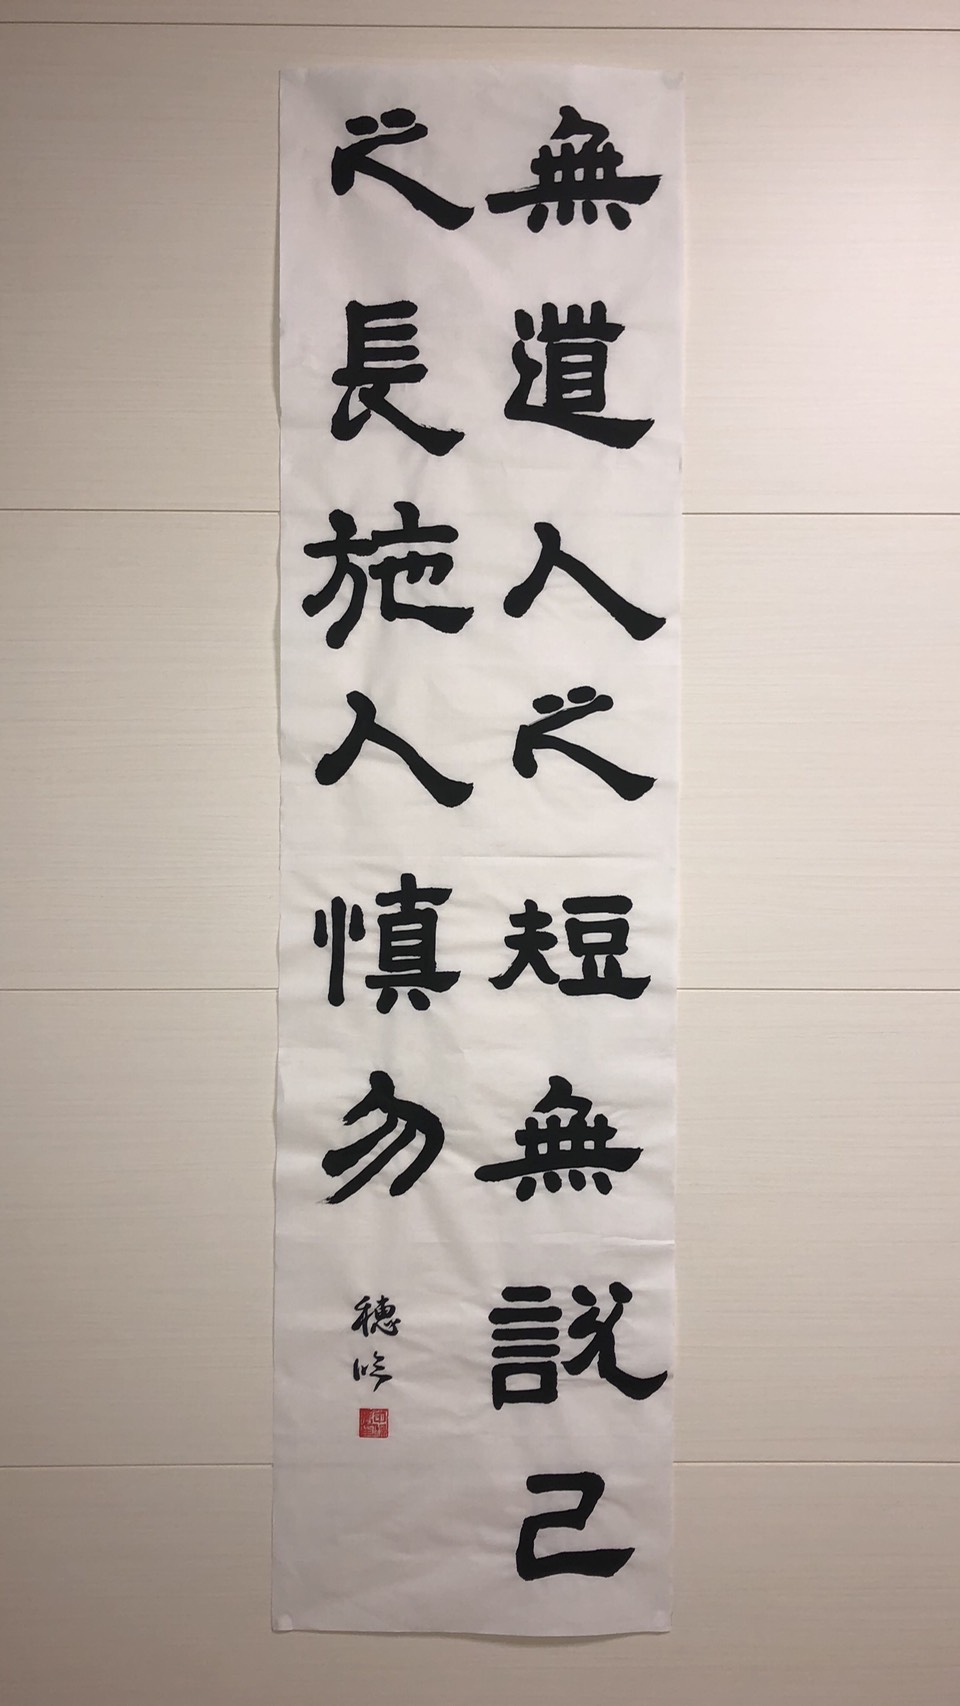 無道人之短無説己
之長施人慎勿
穂吟